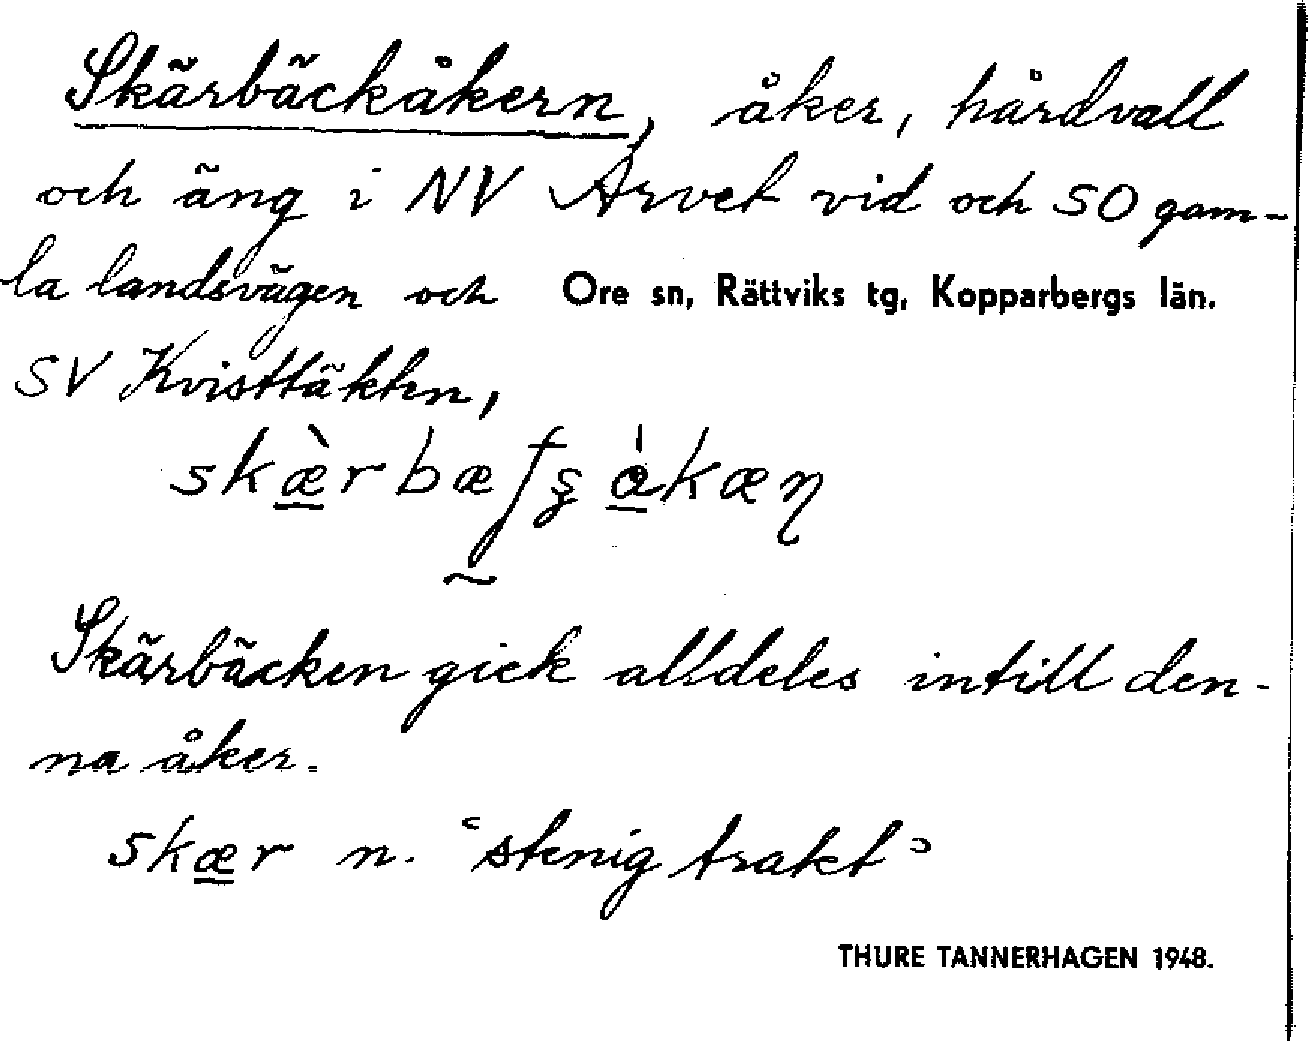 Skärbäckåkern, åker, hårdvall
och äng i NV Arvet vid och SO gam-
la landsvägen och Ore sn, Rättviks tg, Kopparbergs län.
SV Kvisttäkten,
skæ̠̀rbæʃʂ a̠̍kæɳ
Skärbäcken gick alldeles intill den-
na åker.
skæ̠r n. ‘stenig trakt’
THURE TANNERHAGEN 1948.